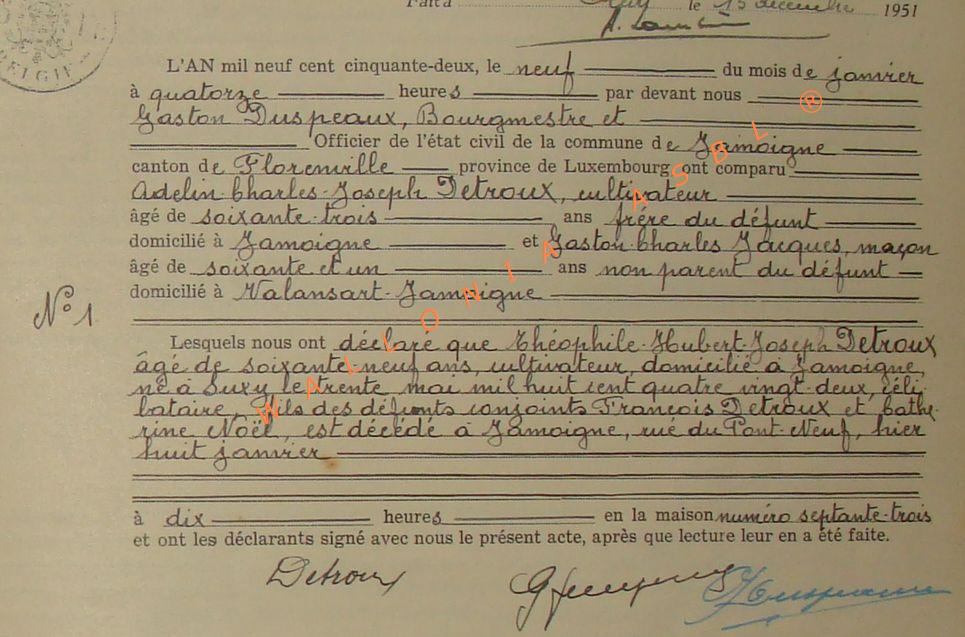 Fait à Izel le 15 décembre 1951
BELGIE
L'AN mil neuf cent cinquante-deux, le neuf du mois de janvier
à quatorze heures par devant nous
Gaston Duspeaux, Bourgmestre et
Officier de l'état civil de la commune de Jamoigne
canton de Florenville province de Luxembourg ont comparu
Adelin-Charles-Joseph Detroux, cultivateur
âgé de soixante-trois ans frère du défunt
domicilié à Jamoigne et Gaston Charles Jacques, maçon
âgé de soixante et un ans non parent du défunt
domicilié à Valansart-Jamoigne
N° 1
Lesquels nous ont déclaré que Théophile-Hubert-Joseph Detroux
âgé de soixante-neuf ans, cultivateur, domicilié à Jamoigne,
né à Suxy le trente mai mil huit cent quatre vingt-deux, céli-
bataire, fils des défunts conjoints François Detroux et Cathe-
rine Noël, est décédé à Jamoigne, rue du Pont-Neuf, hier
huit janvier
à dix heures en la maison numéro septante-trois
et ont les déclarants signé avec nous le présent acte, après que lecture leur en a été faite.
Detroux
WALLONIA ASBL ®